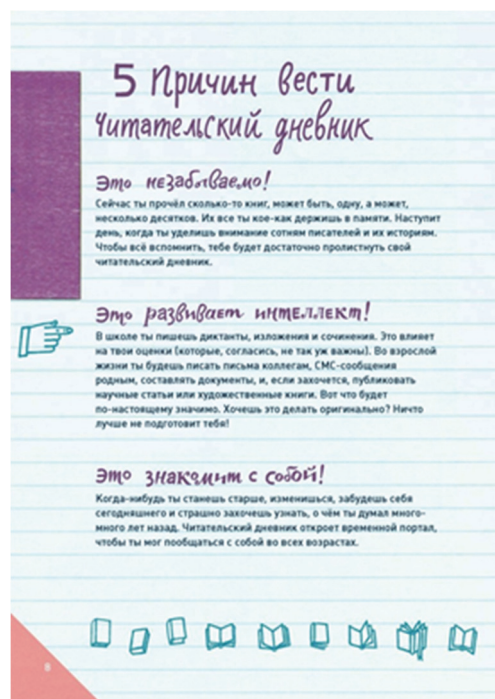 5 Причин вести
Читательский дневник
Это незабываемо!
Сейчас ты прочёл сколько-то книг, может быть, одну, а может,
несколько десятков. Их все ты кое-как держишь в памяти. Наступит
день, когда ты уделишь внимание сотням писателей и их историям.
Чтобы всё вспомнить, тебе будет достаточно пролистнуть свой
читательский дневник.
Это развивает интеллект!
В школе ты пишешь диктанты, изложения и сочинения. Это влияет
на твои оценки (которые, согласись, не так уж важны). Во взрослой
жизни ты будешь писать письма коллегам, СМС-сообщения
родным, составлять документы, и, если захочется, публиковать
научные статьи или художественные книги. Вот что будет
по-настоящему значимо. Хочешь это делать оригинально? Ничто
лучше не подготовит тебя!
Это знакомит с собой!
Когда-нибудь ты станешь старше, изменишься, забудешь себя
сегодняшнего и страшно захочешь узнать, о чём ты думал много-
много лет назад. Читательский дневник откроет временной портал,
чтобы ты мог пообщаться с собой во всех возрастах.
8